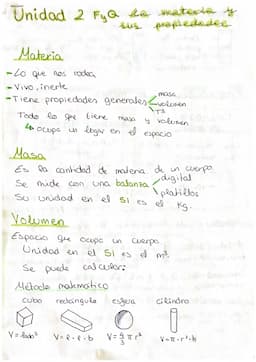 Unidad 2 FyQ La materia y
sus propiedades
Materia
- Lo que nos rodea
- Vivo, inerte
- Tiene propiedades generales masa
volumen
Tª
Todo lo que tiene masa y volumen
↳ ocupa un lugar en el espacio
Masa
Es la cantidad de materia de un cuerpo
Se mide con una balanza digital
platillos
Su unidad en el SI es el Kg.
Volumen
Espacio que ocupa un cuerpo
Unidad en el SI es el m³.
Se puede calcular:
Método matemático
cubo rectángulo esfera cilindro
V = lado³ V = l · l · b V = 4/3 π r³ V = π · r² · h